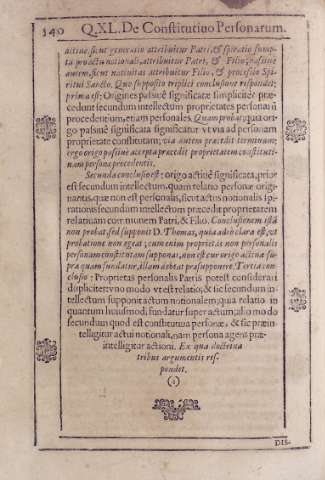 140 Q.XL. De Constitutivo Personarum.
activæ, sicut generatio attribuitur Patri, & spiratio sump-
ta pro actu notionali, attribuitur Patri, & Filio; passivæ
autem, sicut nativitas attribuitur Filio, & processio Spi-
ritui Sancto. Quo supposito triplici conclusione respondet;
prima est; Origines passivè significatæ simpliciter præ-
cedunt secundum intellectum proprietates personarũ
procedentium, etiam personales. Quam probat, quia ori-
go passivè significata significatur ut via ad personam
proprietate constitutam; via autem præcedit terminum;
ergo origo passivè accepta præcedit proprietatem constituti-
nam personæ procedentis.
Secunda conclusio est: origo activè significata, prior
est secundum intellectum, quam relatio personæ origi-
nantis, quæ non est personalis, sicut actus notionalis spi-
rationis secundum intellectum præcedit proprietatem
relativam communem Patri, & Filio. Conclusionem istã
non probat, sed supponit D. Thomas, quia adeò clara est, ut
probatione non egeat; cum enim proprietas non personalis
personam constitutam supponat, non est cur origo activa su-
pra quam fundatur, illam debeat præsupponere. Tertia con-
clusio: Proprietas personalis Patris potest considerari
dupliciter: uno modo ut est relatio, & sic secundum in-
tellectum supponit actum notionalem, quia relatio in
quantum huiusmodi fundatur super actum; alio modo
secundum quod est constitutiva personæ, & sic præin-
telligitur actui notionali, nam persona agens præ-
intelligitur actioni. Ex qua doctrina
tribus argumentis res-
pondet.
DIS-